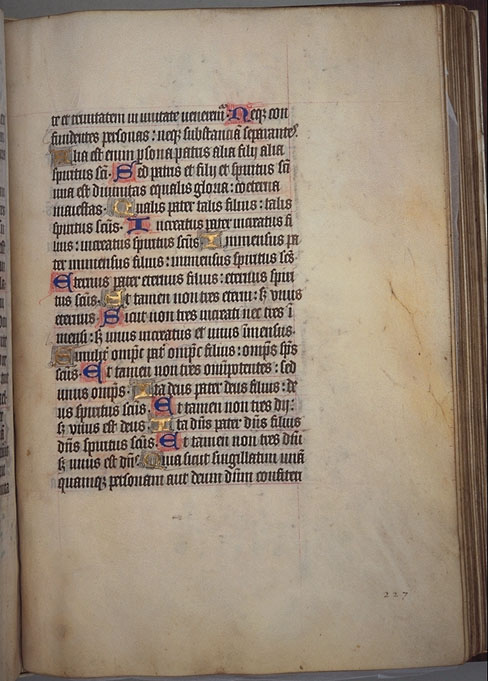 te et trinitatem in unitate venerem̃. Neq; con
fundentes personas : neq; substanciã separantes.
Alia est enim p̱sona patris alia filij alia
spiritus sc̃i. Sed patris et filij et spiritus sc̃i
una est divinitas equalis gloria : coeterna
maiestas. Qualis pater talis filius : talis
spiritus sc̃us. Increatus pater increatus fi
lius : increatus spiritus sc̃us. Immensus pa
ter immensus filius : immensus spiritus sc̃s.
Eternus pater eternus filius : eternus spiri
tus sc̃us. Et tamen non tres eterni : sʒ vnus
eternus. Sicut non tres increati nec tres ĩ
mensi : sʒ unus increatus et unus ĩmensus.
Similiť omp̃s pať omp̃s filius : omp̃s sp̃s
sc̃us. Et tamen non tres omnipotentes : sed
unus omp̃s. Ita deus pater deus filius : de
us spiritus sc̃us. Et tamen non tres dij :
sʒ vnus est deus. Ita dñs pater dñs filius
dñs spiritus sc̃us. Et tamen non tres dñi
sʒ unus est dñs. Quia sicut singillatim unã
quamq; personam aut deum dũm confiteri
227